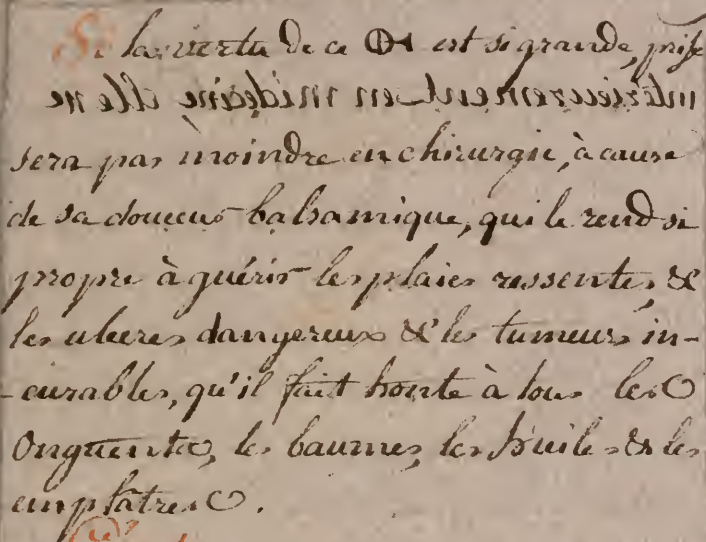 Si la vertu de ce est si grande, prise
intérieurement en médecine elle ne
sera pas moindre en chirurgie, à cause
de sa douceur balsamique, qui le rend si
propre à guérir les plaies ressentes, &
les ulceres dangereux & les tumeurs in-
-curables, qu'il fait honte à tous les
Onguents, les baumes, les huiles & les
emplâtres.